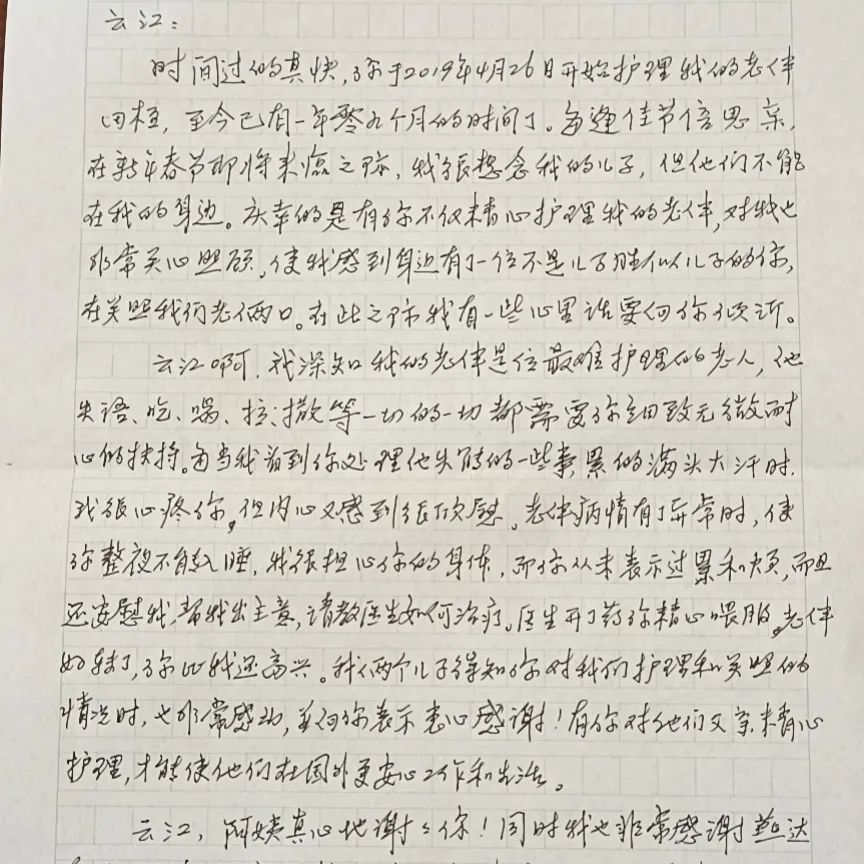 云江：
时间过的真快，你于2019年4月26日开始护理我的老伴
田桂，至今已有一年零九个月的时间了。每逢佳节倍思亲，
在新年春节即将来临之际，我很想念我的儿子，但他们不能
在我的身边。庆幸的是有你不仅精心护理我的老伴，对我也
非常关心照顾，使我感到身边有了一位不是儿子胜似儿子的你，
在关照我们老俩口。在此之际我有一些心里话要向你倾诉。
云江啊，我深知我的老伴是位最难护理的老人，他
失语、吃、喝、拉、撒等一切的一切都需要你细致无微耐
心的扶持。每当我看到你处理他失禁的一些累的满头大汗时，
我很心疼你，但内心又感到很欣慰。老伴病情有了异常时，使
你整夜不能入睡，我很担心你的身体，而你从未表示过累和烦，而且
还安慰我，帮我出主意，请教医生如何治疗。医生开了药你精心喂服，老伴
好转了，你比我还高兴。我俩个儿子得知你对我们护理和关照的
情况时，也非常感动，并向你表示衷心感谢！有你对他们父亲精心
护理，才能使他们在国外更安心工作和生活。
云江，阿姨真心地谢谢你！同时我也非常感谢慈达